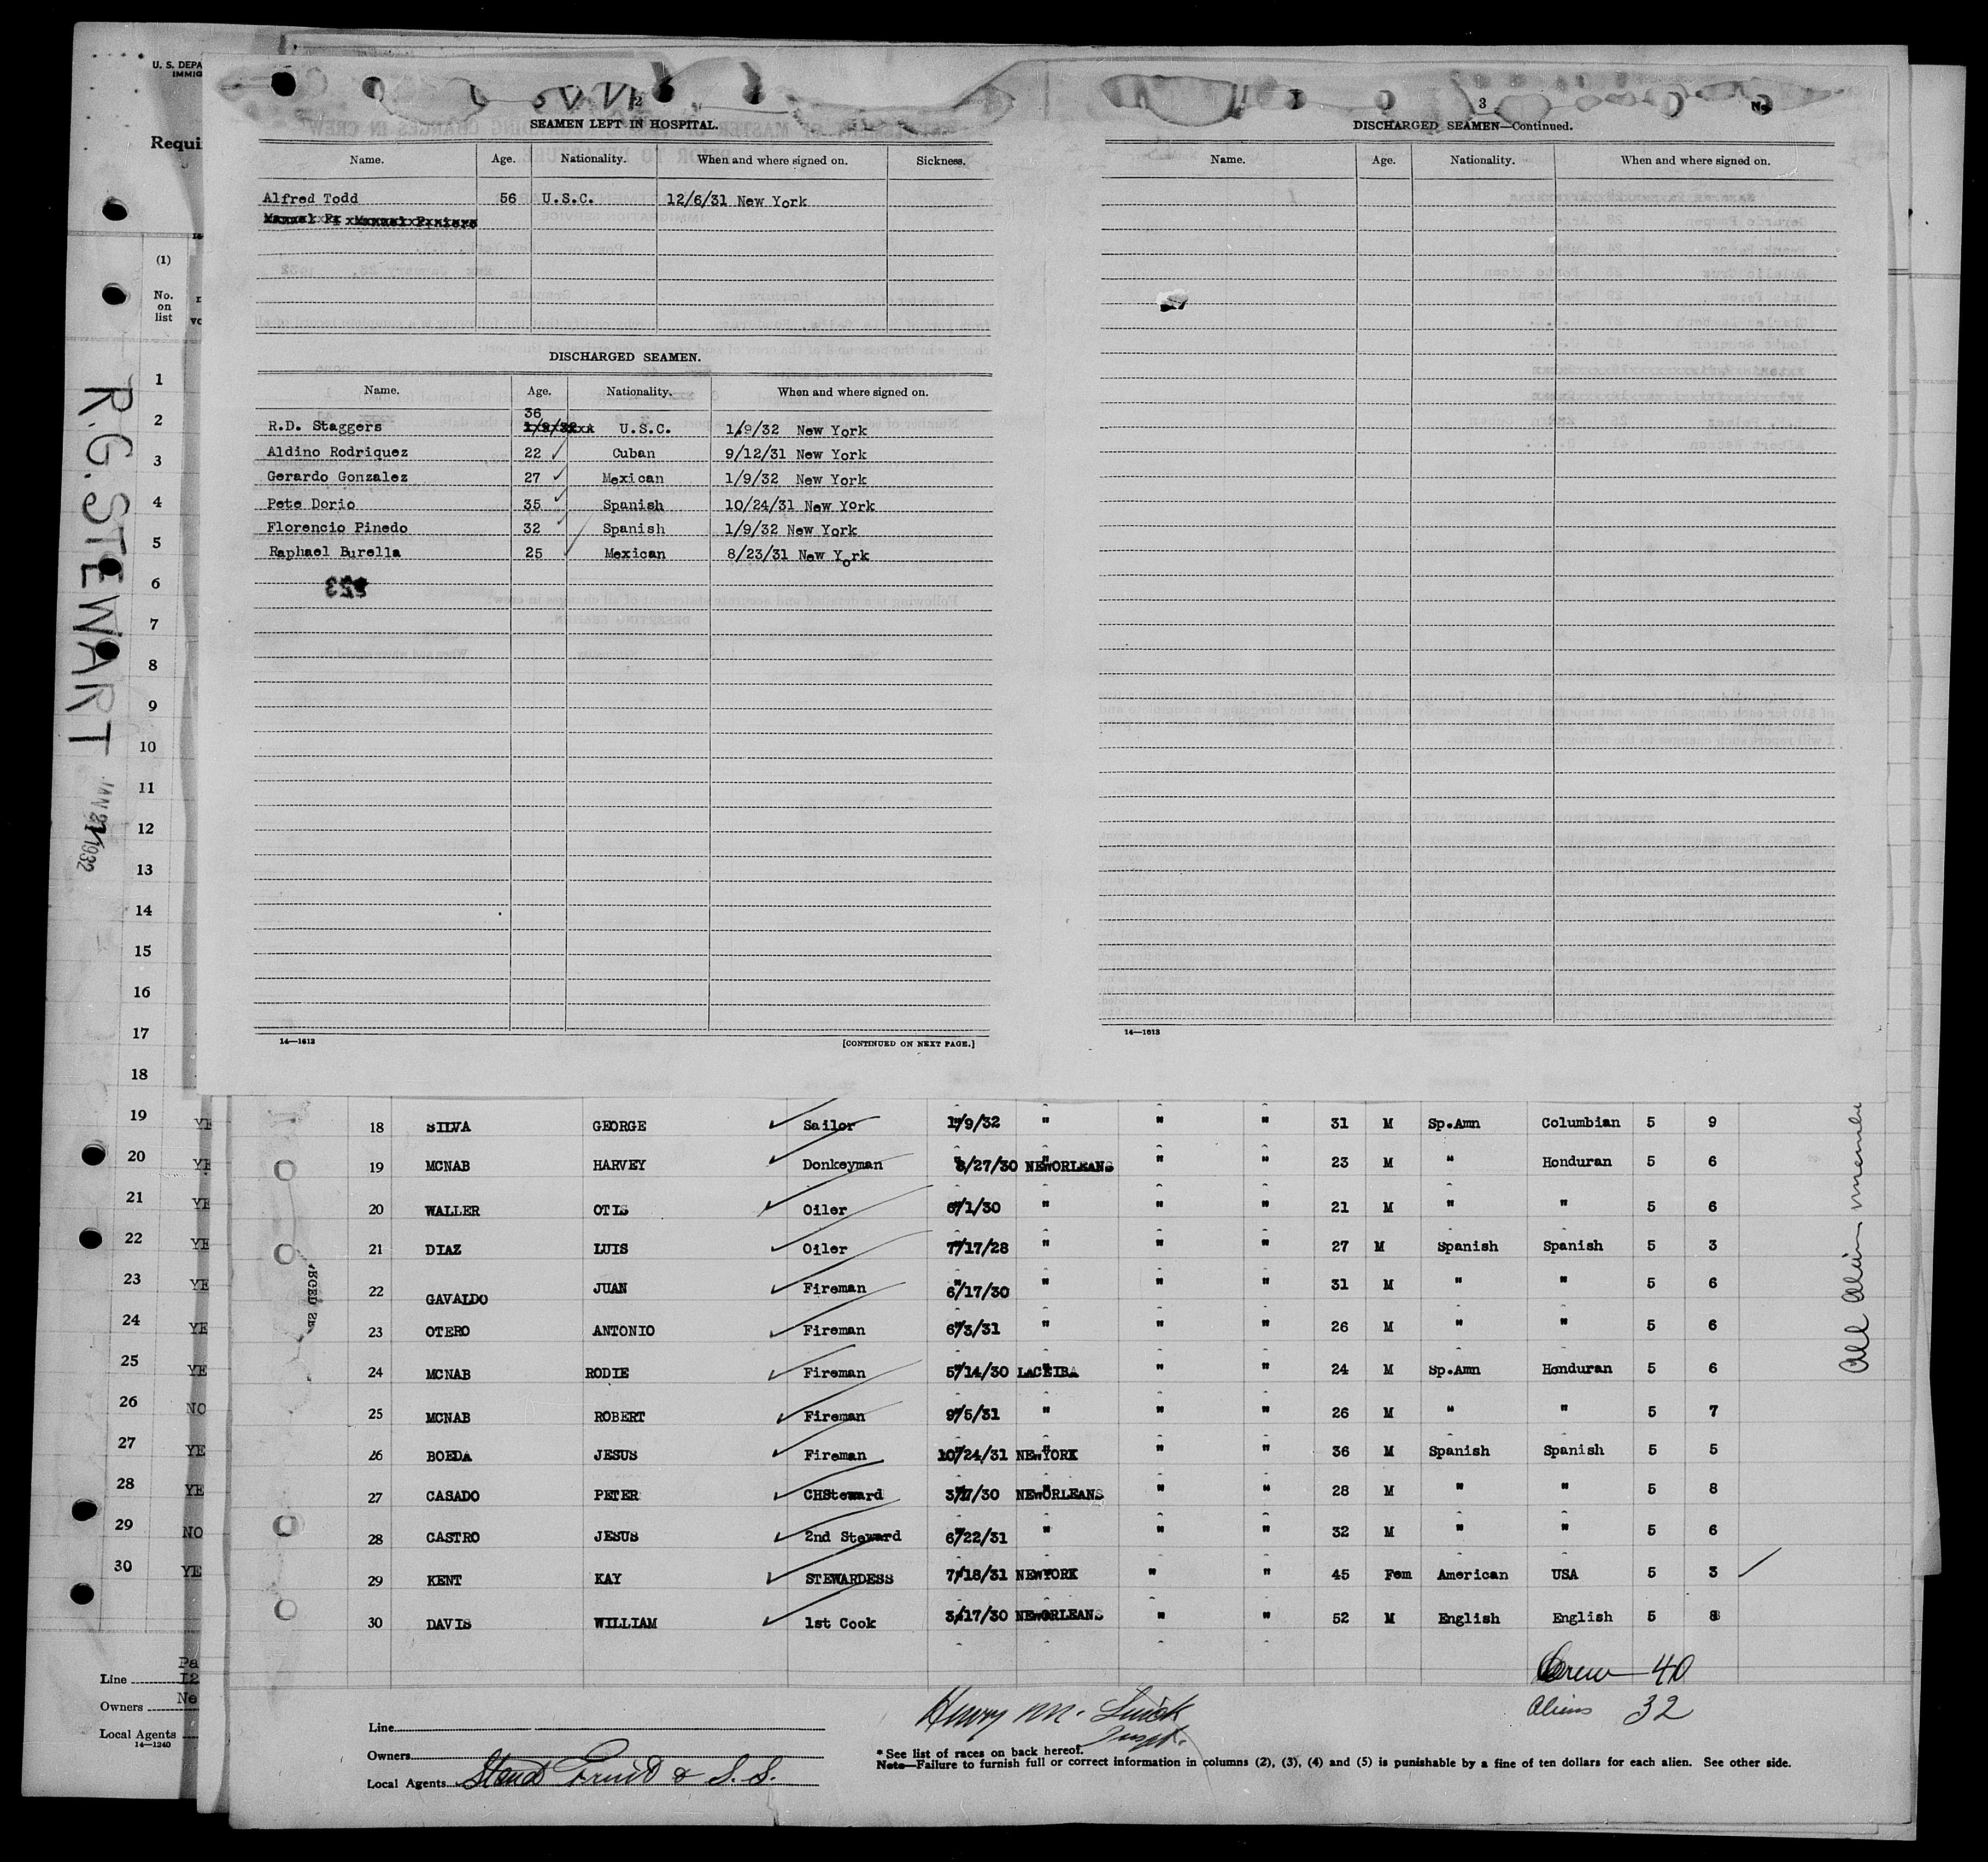 U. S. DEPA
IMMIG
Requi
(1)
No.
on
list
1
2
3
4
5
6
7
8
9
10
11
12
13
14
15
16
17
18
19 YE
20 YE
21 YE
22 YE
23 YE
24 YE
25 YE
26 NO
27 YE
28 YE
29 NO
30 YE
Line
Owners Ne
Local Agents
14—1240
R.G. STEWART
1932
2
SEAMEN LEFT IN HOSPITAL.
Name. Age. Nationality. When and where signed on. Sickness.
Alfred Todd 56 U.S.C. 12/6/31 New York
DISCHARGED SEAMEN.
Name. Age. Nationality. When and where signed on.
36
R.D. Staggers U.S.C. 1/9/32 New York
Aldino Rodriquez 22 ✓ Cuban 9/12/31 New York
Gerardo Gonzalez 27 ✓ Mexican 1/9/32 New York
Pete Dorio 35 ✓ Spanish 10/24/31 New York
Florencio Pinedo 32 ✓ Spanish 1/9/32 New York
Raphael Burella 25 ✓ Mexican 8/23/31 New York
14—1613 [CONTINUED ON NEXT PAGE.]
3
DISCHARGED SEAMEN—Continued.
Name. Age. Nationality. When and where signed on.
14—1613
18 SILVA GEORGE ✓ Sailor 1/9/32 " " " 31 M Sp.Amn Columbian 5 9
19 MCNAB HARVEY ✓ Donkeyman 8/27/30 NEWORLEANS " " 23 M " Honduran 5 6
20 WALLER OTIS ✓ Oiler 6/1/30 " " " 21 M " " 5 6
21 DIAZ LUIS ✓ Oiler 7/17/28 " " " 27 M Spanish Spanish 5 3
22 GAVALDO JUAN ✓ Fireman 6/17/30 " " " 31 M " " 5 6
23 OTERO ANTONIO ✓ Fireman 6/3/31 " " " 26 M " " 5 6
24 MCNAB RODIE ✓ Fireman 5/14/30 LACEIBA " " 24 M Sp.Amn Honduran 5 6
25 MCNAB ROBERT ✓ Fireman 9/5/31 " " " 26 M " " 5 7
26 BOEDA JESUS ✓ Fireman 10/24/31 NEWYORK " " 36 M Spanish Spanish 5 5
27 CASADO PETER ✓ CHSteward 3/7/30 NEWORLEANS " " 28 M " " 5 8
28 CASTRO JESUS ✓ 2nd Steward 6/22/31 " " " 32 M " " 5 6
29 KENT KAY ✓ STEWARDESS 7/18/31 NEWYORK " " 45 Fem American USA 5 3 ✓
30 DAVIS WILLIAM ✓ 1st Cook 3/17/30 NEWORLEANS " " 52 M English English 5 8
Crew—40
Aliens 32
Henry M.
Inspt.
Line
Owners
Local Agents Stand Fruit & S.S.
* See list of races on back hereof.
Note—Failure to furnish full or correct information in columns (2), (3), (4) and (5) is punishable by a fine of ten dollars for each alien. See other side.
All Alien